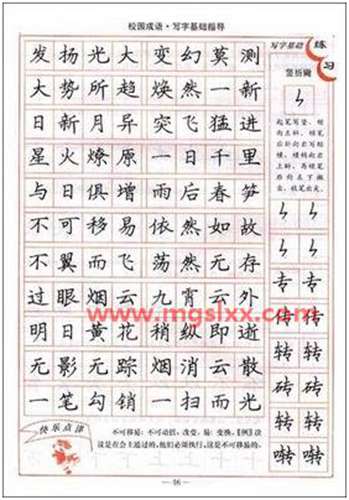 校园成语·写字基础指导
发扬光大 变幻莫测
大势所趋 焕然一新
日新月异 突飞猛进
星火燎原 一日千里
与日俱增 雨后春笋
不可移易 依然如故
不翼而飞 荡然无存
过眼烟云 九霄云外
明日黄花 稍纵即逝
无影无踪 烟消云散
一笔勾销 一扫而光
www.mgslxx.com
写字基础
练习
竖折撇
专 专
传 传
转 转
砖 砖
转 转
啭 啭
快乐点津
不可移易：不可动摇、改变。易：变换。【例】决
议是在会上通过的，他们必须执行，这是不可移易的。
— 56 —